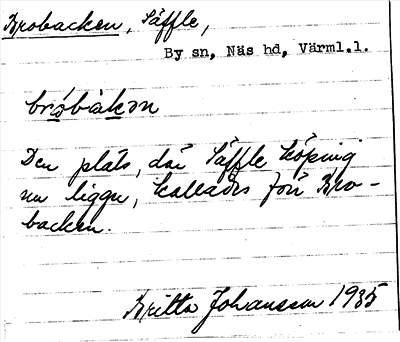 Brobacken, Säffle,
By sn, Näs hd, Värml.l.
brobakɐn
Den plats, där Säffle köping
nu ligger, kallades förr Bro-
backen.
Britta Johansson 1935